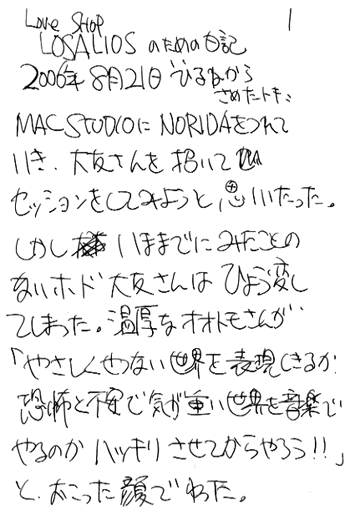 Love Shop 1
LOSALIOS のための日記
2006年8月21日 ひるねから
さめたトキ:
MAC STUDIOに NORIDAをつれて
いき、大友さんを招いて
セッションをしてみようと思いたった。
しかし いままでにみたことの
ないホド 大友さんは ひょう変し
てしまった。温厚なオオトモさんが
「やさしく せつない世界を表現しきるか
恐怖と不安で気が重い世界を音楽で
やるのか ハッキリ させてからやろう!!」
と、おこった顔で